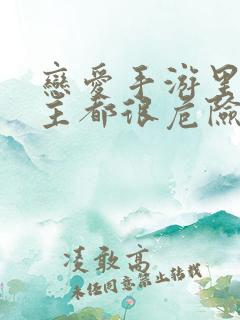 戀愛手游里
主都很危險
凌敢高
未经同意禁止转载